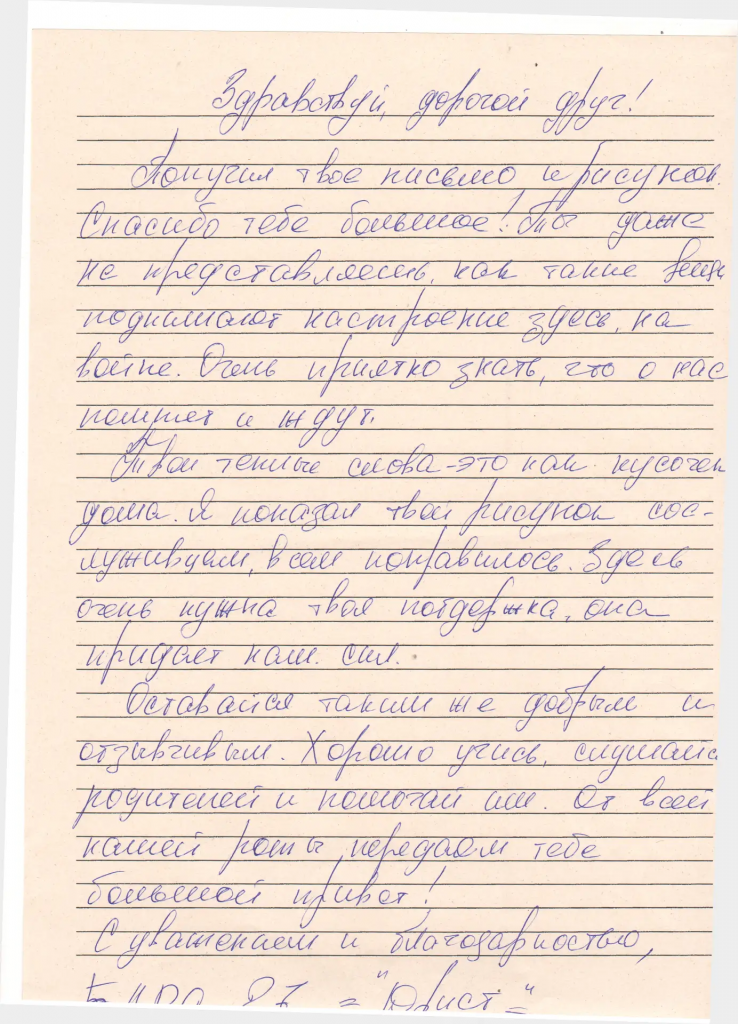 Здравствуй, дорогой друг!
Получил твое письмо и рисунок.
Спасибо тебе большое! Ты даже
не представляешь, как такие вещи
поднимают настроение здесь, на
войне. Очень приятно знать, что о нас
помнят и ждут.
Твои теплые слова - это как кусочек
дома. Я показал твой рисунок сос-
луживцам, всем понравилось. Здесь
очень нужна твоя потдержка, она
придает нам сил.
Оставайся таким же добрым и
отзывчивым. Хорошо учись, слушайся
родителей и помогай им. От всей
нашей роты передаем тебе
большой привет!
С уважением и благодарностью,
"Юрист"